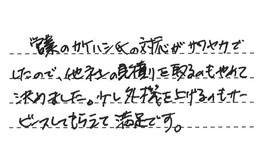 営業のカケハシ氏の対応がサワヤカで
したので、他社の見積りを取るのもやめて
決めました。少し外構を上げるのもサー
ビースしてもらえて満足です。